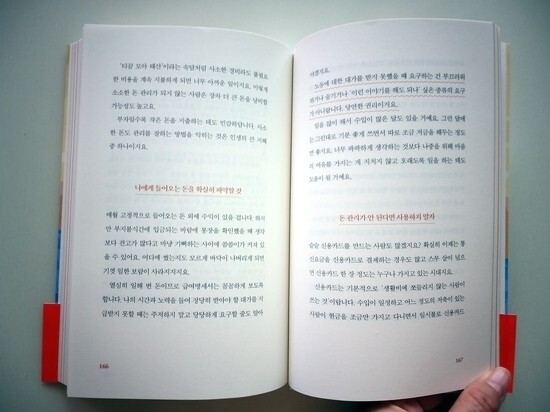 '티끌 모아 태산'이라는 속담처럼 사소한 경비라도 불필요
한 비용을 계속 지불하게 되면 너무 아까운 일이지요. 이렇게
소소한 돈 관리가 되지 않는 사람은 장차 더 큰 돈을 낭비할
가능성도 높고요.
부자일수록 작은 돈을 지출하는 데도 민감하답니다. 사소
한 돈도 관리를 잘하는 방법을 익히는 것은 인생의 큰 지혜
중 하나이지요.
나에게 들어오는 돈을 확실히 파악할 것
매월 고정적으로 들어오는 돈 외에 수익이 있을 겁니다. 하지
만 부지불식간에 입금되는 바람에 통장을 확인했을 때 생각
보다 잔고가 많다고 마냥 기뻐하는 사이에 씀씀이가 커져 있
을 수 있어요. 어디에 썼는지도 모르게 바닥이 나버리게 되면
기껏 일한 보람이 사라지지요.
열심히 일해 번 돈이므로 급여명세서는 꼼꼼하게 보도록
합니다. 나의 시간과 노력을 들여 정당히 받아야 할 대가를 지
급받지 못할 때는 주저하지 말고 당당하게 요구할 줄도 알아
166
야겠지요.
노동에 대한 대가를 받지 못했을 때 요구하는 건 부끄러워
하거나 숨기거나 '이런 이야기를 해도 되나' 싶은 종류의 요구
가 아니랍니다. 당연한 권리이지요.
일을 많이 해서 수입이 많은 달도 있을 거예요. 그런 달에
는 그런대로 기분 좋게 쓰면서 따로 조금 저금을 해두는 정도
면 좋지요. 너무 팍팍하게 생각하는 것보다 나중을 위해 마음
의 여유를 가지는 게 지치지 않고 오래도록 일을 하는 데도
도움이 될 거예요.
돈 관리가 안 된다면 사용하지 말자
슬슬 신용카드를 만드는 사람도 많겠지요? 확실히 이제는 통
신요금을 신용카드로 결제하는 경우도 많고 스무 살이 넘으
면 신용카드 한 장 정도는 누구나 가지고 있는 시대지요.
신용카드는 기본적으로 '생활비에 쪼들리지 않는 사람이
쓰는 것'이랍니다. 수입이 일정하고 어느 정도의 저축이 있는
사람이 현금을 조금만 가지고 다니면서 임시불로 신용카드
167